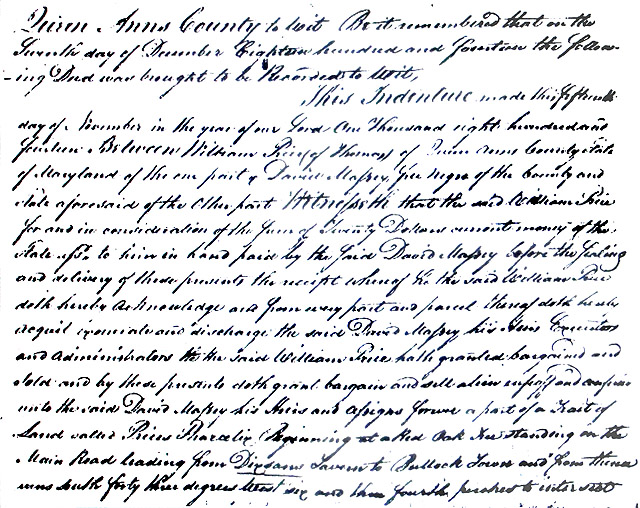 Queen Anns County to wit Be it remembered that on the
Seventh day of December Eighteen hundred and fourteen the follow-
-ing Deed was bought to be Recorded to wit,
This Indenture made this fifteenth
day of November in the year of our Lord One Thousand eight hundred and
fourteen Between William Price (of Thomas) of Queen Anns County State
of Maryland of the one part & David Massey, free negro of the County and
State aforesaid of the Other part Witnesseth that the said William Price
for and in consideration of the Sum of Twenty Dollars current money of the
State afsd. to him in hand paid by the said David Massey before the Sealing
and delivery of these presents the receipt whereof he the said William Price
doth hereby acknowledge and from every part and parcel thereof doth hereby
acquit exonerate and discharge the said David Massey his Heirs Executors
and administrators the said William Price hath granted bargained and
sold and by these presents doth grant bargain and sell alien enfeoff and confirm
unto the said David Massey his Heirs and assigns forever a part of a Tract of
Land called Prices Beginning at a Red Oak Tree standing on the
Main Road leading from Dixsons Tavern to Bullock Town and from thence
runs south forty three degrees West six and three fourth perches to intersect